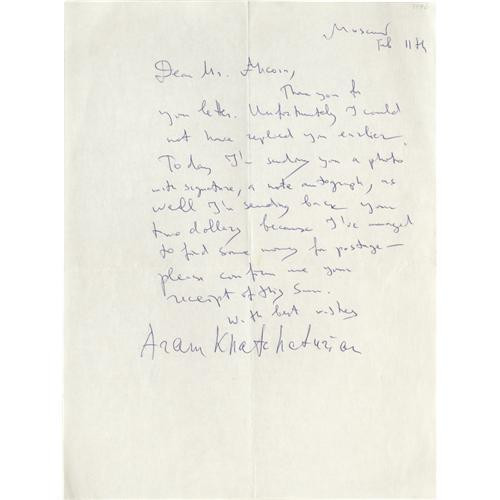 Moscow
Feb 11th
Dear Mr. Alcorn,
Thank you for
your letter. Unfortunately I could
not have replied you earlier.
Today I'm sending you a photo
with signature, a note autograph, as
well I'm sending back your
two dollars because I've managed
to find some money for postage —
please confirm me your
receipt of this sum.
With best wishes
Aram Khatchaturian